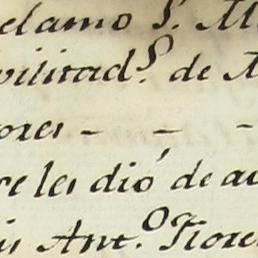 elamo S. M
vilitad.s de A
ores - - -
re les dió de au
is Ant.o Flore